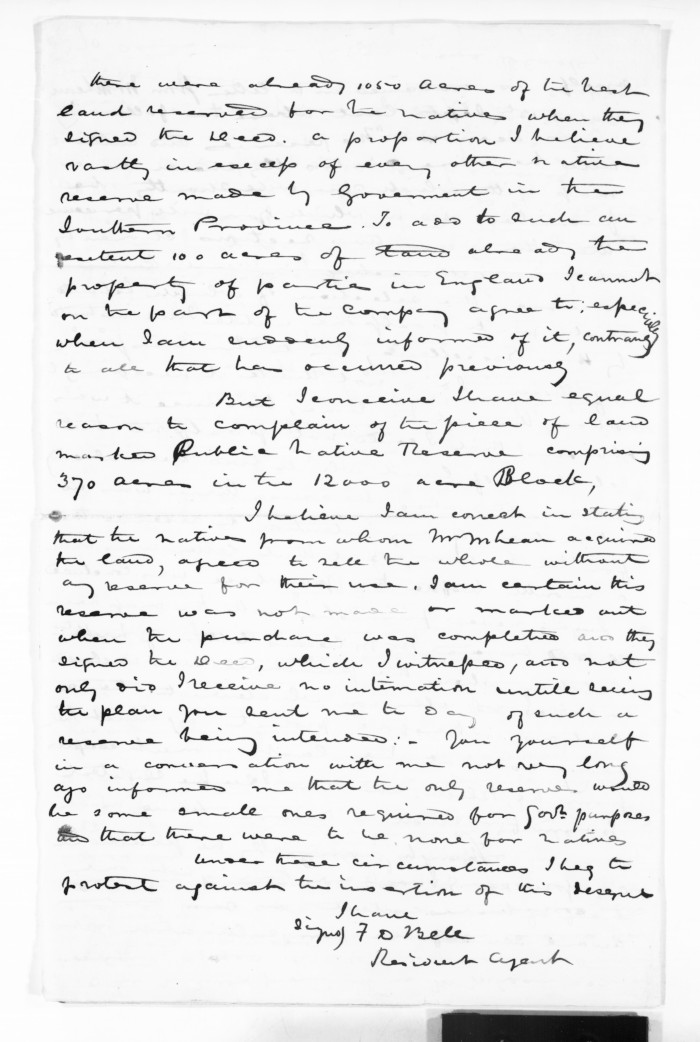 there were already 1050 acres of the best
land reserved for the natives when they
signed the Deed. a proportion I believe
vastly in excess of every other native
reserve made by Goverment in the
Southern Province. To add to such an
extent 100 acres of land already the
property of parties in England I cannot
on the part of the Company agree to; especially
when I am suddenly informed of it, contrary
to all that has occurred previously
But I conceive I have equal
reason to complain of the piece of land
marked Public Native Reserve comprising
370 acres in the 12000 acre Block,
I believe I am correct in stating
that the natives from whom Mr McLean acquired
the land, agreed to sell the whole without
any reserve for their use. I am certain this
reserve was not made or marked out
when the purchase was completed and they
signed the Deed, which I witnessed, and not
only did I receive no intimation untill seeing
the plan you sent me to Day of such a
reserve being intended:- You yourself
in a conversation with me not very long
ago informed me that the only reserves would
be some small ones required for Govt. purposes
that there were to be none for natives
Under these circumstances I beg to
protest against the insertion of this
I have
Signed F D Bell
Resident Agent